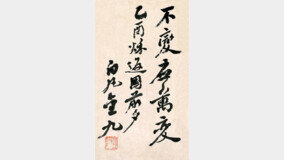 不變應萬变
乙酉秌返國前夕
白凡金九